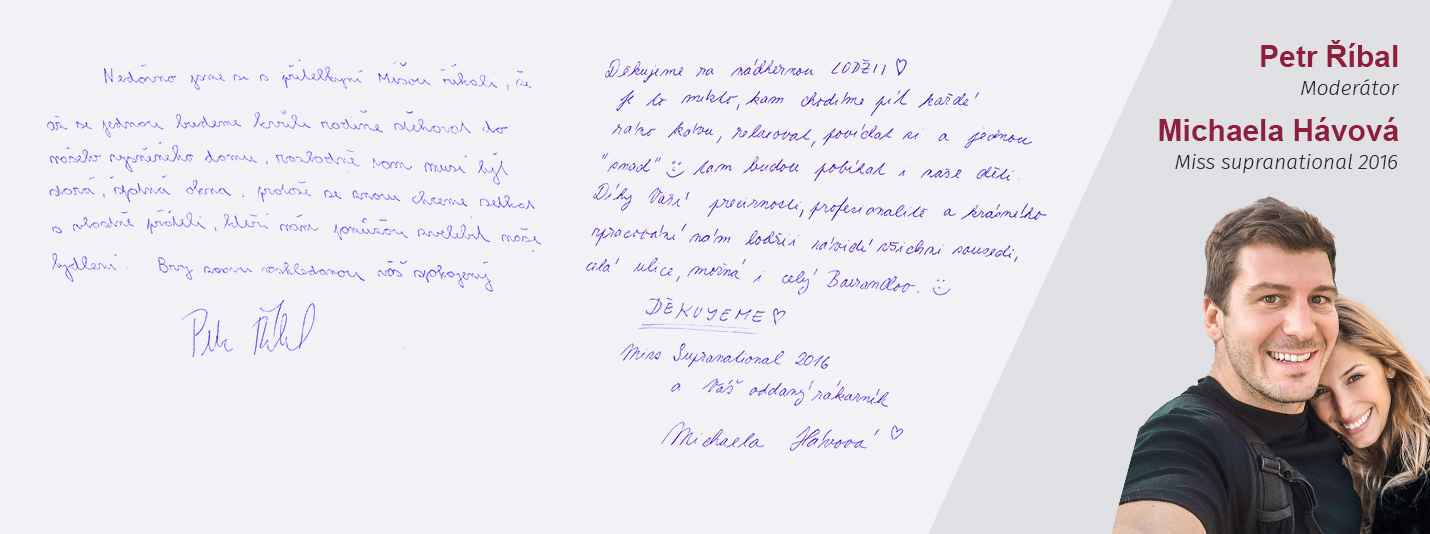 Nedávno jsme si s přítelkyní Míšou říkali, že
až se jednou budeme kvůli rodině stěhovat do
našeho vysněného domu, rozhodně tam musí být
dorá, úplná okna. protože se znovu chceme setkat
s vlastně přáteli, kteří nám pomůžou zvelebit naše
bydlení. Brzy znovu nashledanou váš spokojený
Petr Říbal
Děkujeme za nádhernou LODŽII ♡
Je to místo, kam chodíme pít každé
ráno kávu, relaxovat, povídat si a jednou
"snad" ☺ tam budou pobíhat i naše děti.
Díky Vaší precirnosti, profesionalitě a krásného
zpracování nám lodžii závidí všichni sousedi,
celá ulice, možná i celý Barrandov. ☺
DĚKUJEME ♡
Miss Supranational 2016
a Váš oddaný zákazník
Michaela Hávová ♡
Petr Říbal
Moderátor
Michaela Hávová
Miss supranational 2016